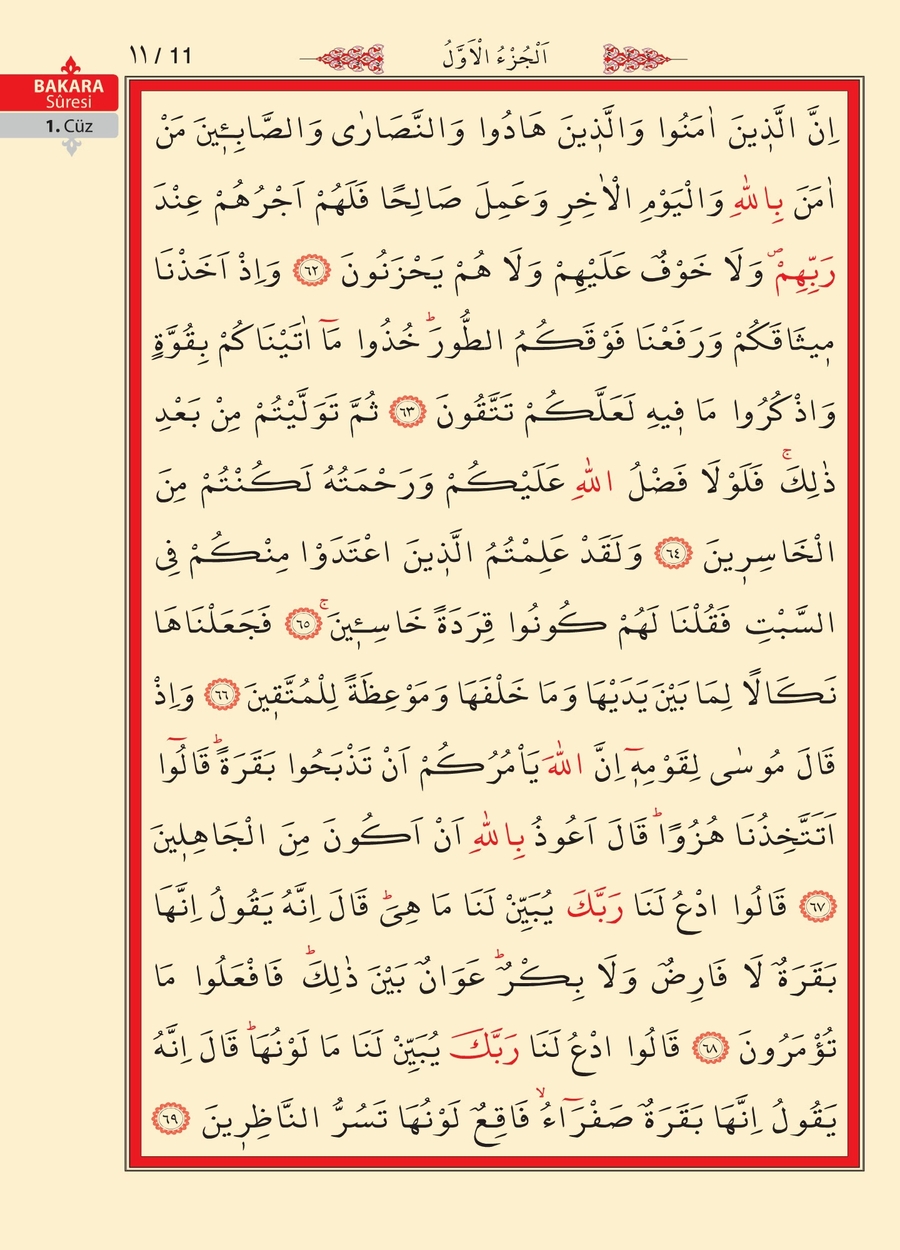 ١١ / 11
اَلْجُزْءُ الْاَوَّلُ
BAKARA
Sûresi
1. Cüz
اِنَّ الَّذ۪ينَ اٰمَنُوا وَالَّذ۪ينَ هَادُوا وَالنَّصَارٰى وَالصَّابِـ۪ٔينَ مَنْ
اٰمَنَ بِاللّٰهِ وَالْيَوْمِ الْاٰخِرِ وَعَمِلَ صَالِحًا فَلَهُمْ اَجْرُهُمْ عِنْدَ
رَبِّهِمْۖ وَلَا خَوْفٌ عَلَيْهِمْ وَلَا هُمْ يَحْزَنُونَ ﴿٦٢﴾ وَاِذْ اَخَذْنَا
م۪يثَاقَكُمْ وَرَفَعْنَا فَوْقَكُمُ الطُّورَۜ خُذُوا مَٓا اٰتَيْنَاكُمْ بِقُوَّةٍ
وَاذْكُرُوا مَا ف۪يهِ لَعَلَّكُمْ تَتَّقُونَ ﴿٦٣﴾ ثُمَّ تَوَلَّيْتُمْ مِنْ بَعْدِ
ذٰلِكَۚ فَلَوْلَا فَضْلُ اللّٰهِ عَلَيْكُمْ وَرَحْمَتُهُ لَكُنْتُمْ مِنَ
الْخَاسِر۪ينَ ﴿٦٤﴾ وَلَقَدْ عَلِمْتُمُ الَّذ۪ينَ اعْتَدَوْا مِنْكُمْ فِى
السَّبْتِ فَقُلْنَا لَهُمْ كُونُوا قِرَدَةً خَاسِـ۪ٔينَۚ ﴿٦٥﴾ فَجَعَلْنَاهَا
نَكَالًا لِمَا بَيْنَ يَدَيْهَا وَمَا خَلْفَهَا وَمَوْعِظَةً لِلْمُتَّق۪ينَ ﴿٦٦﴾ وَاِذْ
قَالَ مُوسٰى لِقَوْمِه۪ٓ اِنَّ اللّٰهَ يَاْمُرُكُمْ اَنْ تَذْبَحُوا بَقَرَةًۜ قَالُٓوا
اَتَتَّخِذُنَا هُزُوًاۜ قَالَ اَعُوذُ بِاللّٰهِ اَنْ اَكُونَ مِنَ الْجَاهِل۪ينَ
﴿٦٧﴾ قَالُوا ادْعُ لَنَا رَبَّكَ يُبَيِّنْ لَنَا مَا هِىَۜ قَالَ اِنَّهُ يَقُولُ اِنَّهَا
بَقَرَةٌ لَا فَارِضٌ وَلَا بِكْرٌۜ عَوَانٌ بَيْنَ ذٰلِكَۜ فَافْعَلُوا مَا
تُؤْمَرُونَ ﴿٦٨﴾ قَالُوا ادْعُ لَنَا رَبَّكَ يُبَيِّنْ لَنَا مَا لَوْنُهَاۜ قَالَ اِنَّهُ
يَقُولُ اِنَّهَا بَقَرَةٌ صَفْرَٓاءُۙ فَاقِعٌ لَوْنُهَا تَسُرُّ النَّاظِر۪ينَ ﴿٦٩﴾